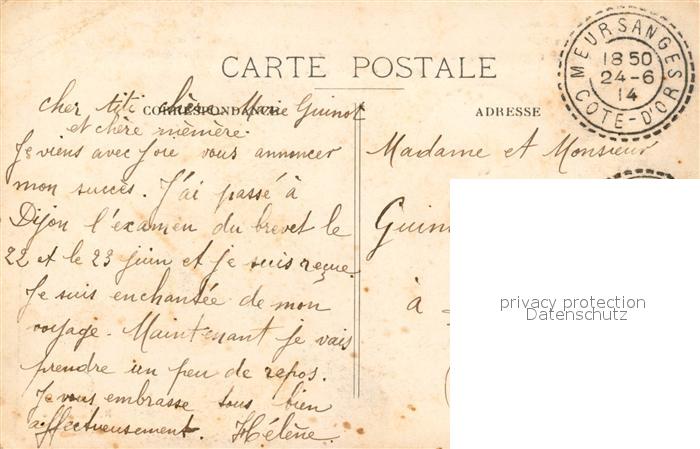 CARTE POSTALE
CORRESPONDANCE
ADRESSE
MEURSANGES
18 50
24-6
14
COTE-D'OR
cher titi chère Marie Guinot
et chère mèmère.
Je viens avec joie vous annoncer
mon succès. J'ai passé à
Dijon l'examen du brevet le
22 et le 23 juin et je suis reçue.
Je suis enchantée de mon
voyage. Maintenant je vais
prendre un peu de repos.
Je vous embrasse tous bien
affectueusement. Hélène.
Madame et Monsieur
à
privacy protection
Datenschutz